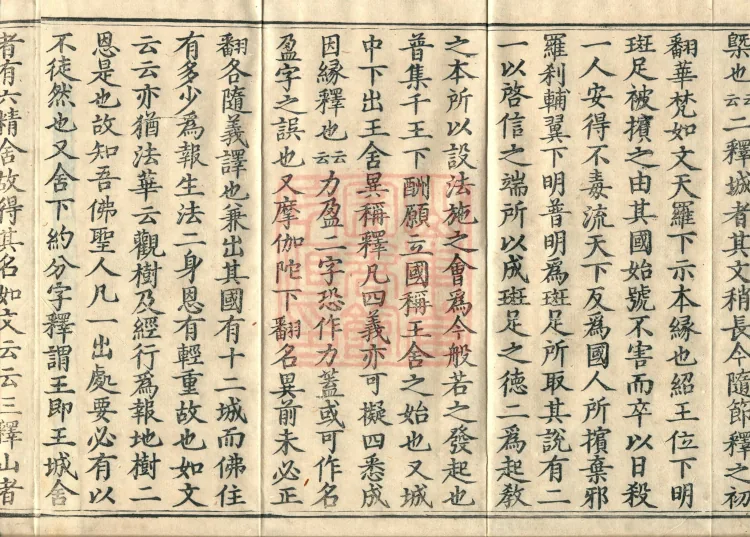 槩也云云二釋城者其文稍長今隨節釋之初
翻華梵如文天羅下示本緣也紹王位下明
斑足被擯之由其國始號不害而卒以日殺
一人安得不毒流天下反爲國人所擯棄邪
羅刹輔翼下明普明爲斑足所取其說有二
一以啓信之端所以成斑足之德二爲起敎
之本所以設法施之會爲今般若之發起也
普集千王下酬願立國稱王舍之始也又城
中下出王舍異稱釋凡四義亦可擬四悉成
因緣釋也云云力盈二字恐作力蓋或可作名
盈字之誤也又摩伽陀下翻名異前未必正
翻各隨義譯也兼出其國有十二城而佛住
有多少爲報生法二身恩有輕重故也如文
云云亦猶法華云觀樹及經行爲報地樹二
恩是也故知吾佛聖人凡一出處要必有以
不徒然也又舍下約分字釋謂王即王城舍
者有六精舍故得其名如文云云三釋山者